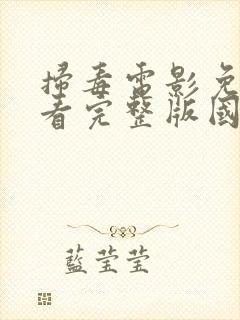 掃毒電影免
看完整版國
藍莹莹